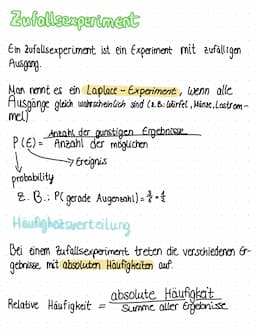 Zufallsexperiment
Ein Zufallsexperiment ist ein Experiment mit zufälligen
Ausgang.
Man nennt es ein Laplace-Experiment, wenn alle
Ausgänge gleich wahrscheinlich sind (z.B. Würfel, Münze, Lostrom-
mel)
P(E) = Anzahl der günstigen Ergebnisse
Anzahl der möglichen
Ereignis
probability
z. B.: P(gerade Augenzahl) = 3/6 = 1/2
Häufigkeitsverteilung
Bei einem Zufallsexperiment treten die verschiedenen Er-
gebnisse mit absoluten Häufigkeiten auf.
Relative Häufigkeit = absolute Häufigkeit
Summe aller Ergebnisse